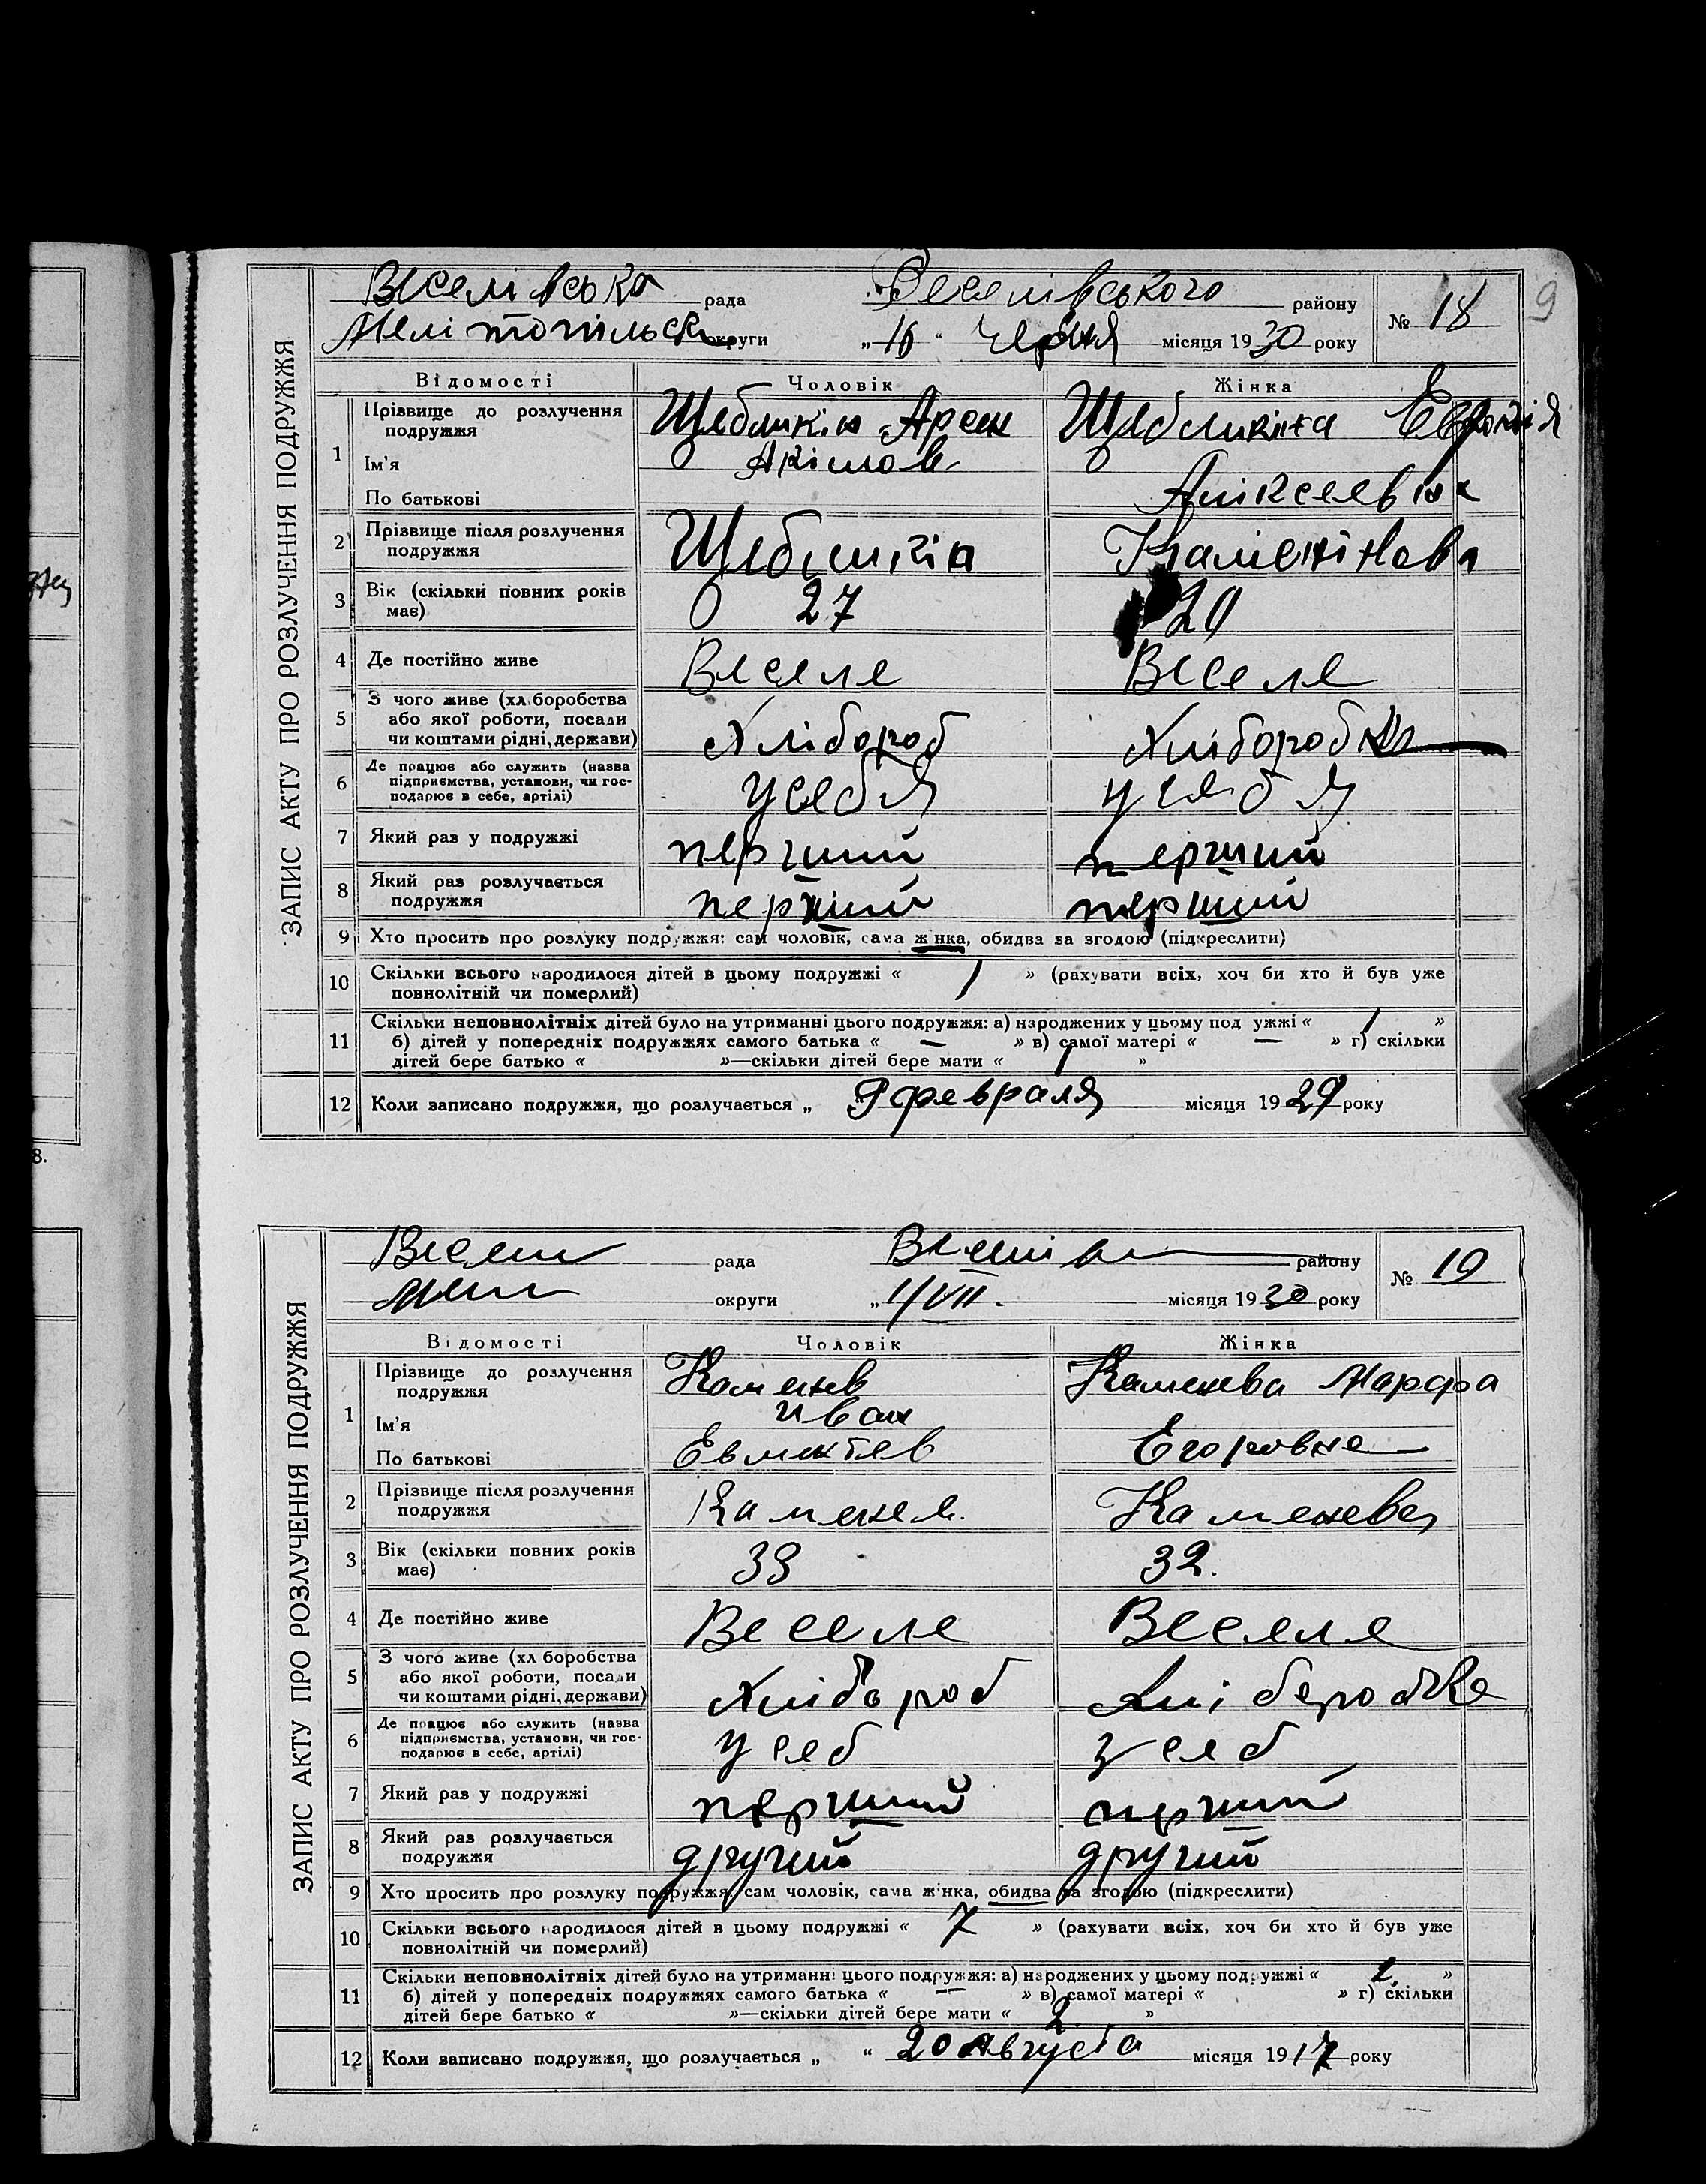 9
ЗАПИС АКТУ ПРО РОЗЛУЧЕННЯ ПОДРУЖЖЯ
Веселівська рада Веселівського району № 18
Мелітопільськ округи „ 16 “ Червня місяця 1930 року
Відомості Чоловік Жінка
1 Прізвище до розлучення подружжя Щебликін Арсен Щебликіна
Ім'я Акімов
По батькові Аліксеевна
2 Прізвище після розлучення подружжя Щебликін
3 Вік (скільки повних років має) 27 20
4 Де постійно живе Веселе Веселе
5 З чого живе (хліборобства
або якої роботи, посади
чи коштами рідні, держави) Хлібороб Хліборобка
6 Де працює або служить (назва
підприємства, установи, чи гос-
подарює в себе, артілі) у себя у себя
7 Який раз у подружжі перший перший
8 Який раз розлучається
подружжя перший перший
9 Хто просить про розлуку подружжя: сам чоловік, сама жінка, обидва за згодою (підкреслити)
10 Скільки всього народилося дітей в цьому подружжі « 1 » (рахувати всіх, хоч би хто й був уже
повнолітній чи померлий)
11 Скільки неповнолітніх дітей було на утриманні цього подружжя: а) народжених у цьому подружжі « 1 »
б) дітей у попередніх подружжях самого батька « — » в) самої матері « — » г) скільки
дітей бере батько « »—скільки дітей бере мати « 1 »
12 Коли записано подружжя, що розлучається „ 9 февраля місяця 1929 року
8.
ЗАПИС АКТУ ПРО РОЗЛУЧЕННЯ ПОДРУЖЖЯ
Весели рада району № 19
Мели округи „ 1/VII. місяця 1930 року
Відомості Чоловік Жінка
1 Прізвище до розлучення
подружжя Каменев Каменева Марфа
Ім'я Иван
По батькові Евментев Егоровна
2 Прізвище після розлучення
подружжя Каменев. Каменева
3 Вік (скільки повних років
має) 33 32.
4 Де постійно живе Веселе Веселе
5 З чого живе (хліборобства
або якої роботи, посади
чи коштами рідні, держави) Хлібороб Хліборобка
6 Де працює або служить (назва
підприємства, установи, чи гос-
подарює в себе, артілі) у себ у себ
7 Який раз у подружжі перший перший
8 Який раз розлучається
подружжя другий другий
9 Хто просить про розлуку подружжя: сам чоловік, сама жінка, обидва за згодою (підкреслити)
10 Скільки всього народилося дітей в цьому подружжі « 7 » (рахувати всіх, хоч би хто й був уже
повнолітній чи померлий)
11 Скільки неповнолітніх дітей було на утриманні цього подружжя: а) народжених у цьому подружжі « 2 »
б) дітей у попередніх подружжях самого батька « — » в) самої матері « » г) скільки
дітей бере батько « »—скільки дітей бере мати « 2 »
12 Коли записано подружжя, що розлучається „ “ 20 августа місяця 1917 року